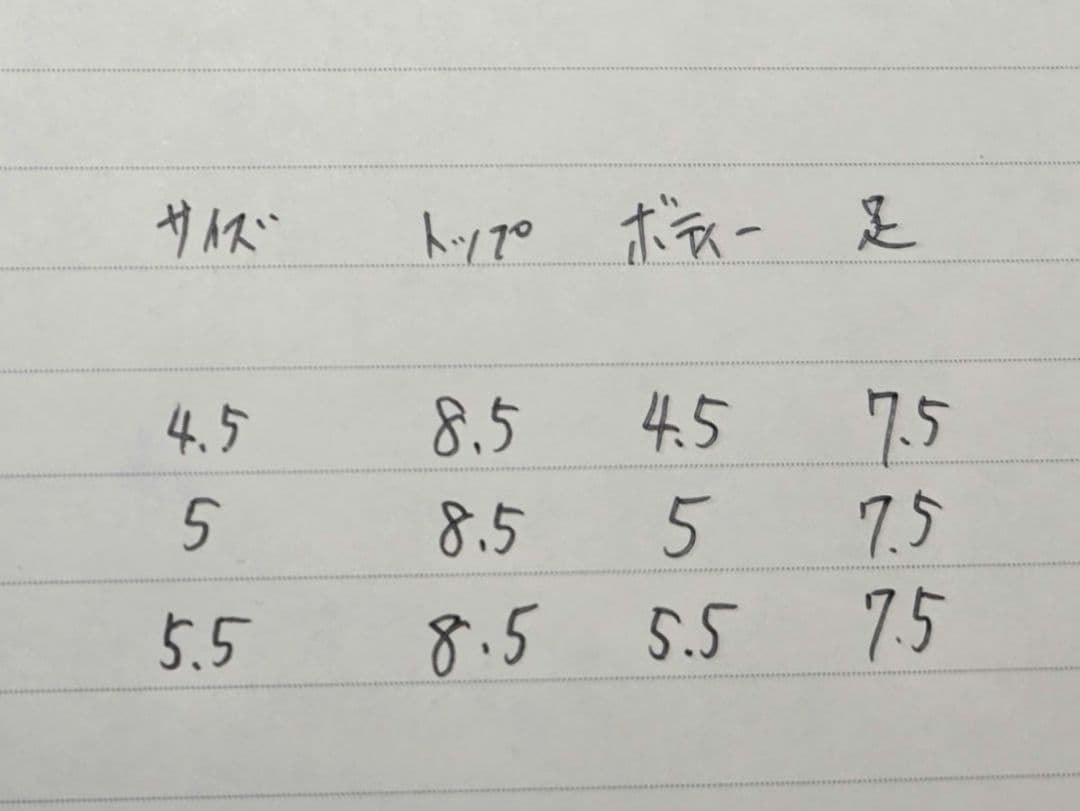 サイズ トップ ボディー 足
4.5 8.5 4.5 7.5
5 8.5 5 7.5
5.5 8.5 5.5 7.5